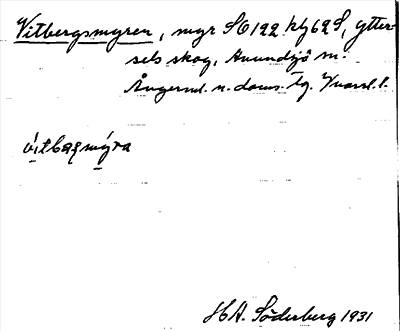 Vitbergsmyren, myr SO 122 kfg 62 S, Ytter-
sels skog, Anundsjö sn.
Ångerml. n. doms. Tg.
vitbaqmýra
H A. Söderberg 1931